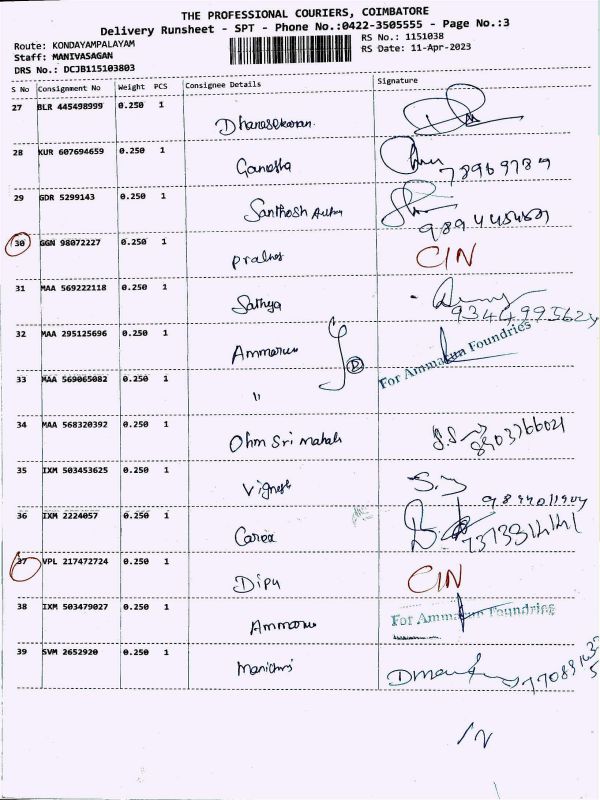 THE PROFESSIONAL COURIERS, COIMBATORE
Delivery Runsheet - SPT - Phone No.:0422-3505555 - Page No.:3
Route: KONDAYAMPALAYAM RS No.: 1151038
Staff: MANIVASAGAN RS Date: 11-Apr-2023
DRS No.: DCJB115103803
S No Consignment No Weight PCS Consignee Details Signature
27 BLR 445498999 0.250 1 Dhanasekaran
28 KUR 607694659 0.250 1 Ganesha
78969789
29 GDR 5299143 0.250 1 Santhosh
30 GGN 98072227 0.250 1 CIN
31 MAA 569222118 0.250 1 Sathya
9344995624
32 MAA 295125696 0.250 1 Ammarun
For Ammarun Foundries
33 MAA 569065082 0.250 1 "
34 MAA 568320392 0.250 1 Ohm Sri Mahal S.S
8903766021
35 IXM 503453625 0.250 1 Vignesh
36 IXM 2224057 0.250 1
37 VPL 217472724 0.250 1 Dipu CIN
38 IXM 503479027 0.250 1 Ammarun For Ammarun Foundries
39 SVM 2652920 0.250 1